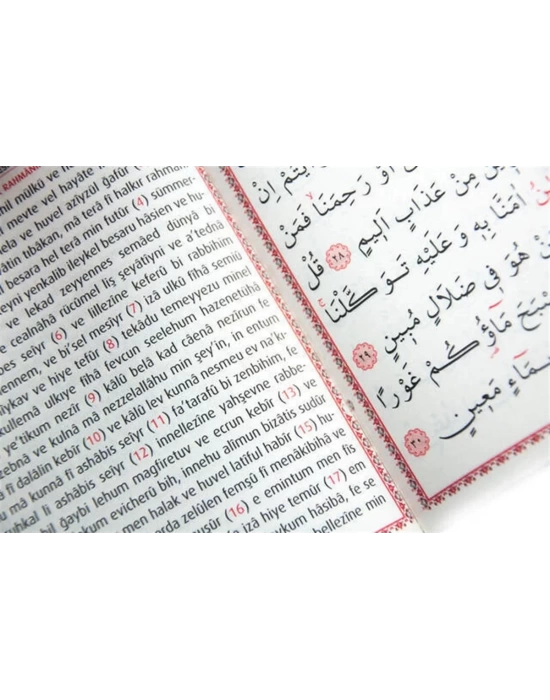 RAHMAN
mil mülkü ve
l mevte vel hayâte
ela ve huvel azîyzül ğafûr
âtin tıbâkan, mâ terâ fî halkır rahmân
l besara hel terâ min futûr (4) sümmer-
teyni yenkalib ileykel besaru hâsien ve hu-
ve lekad zeyyennes semâed dünyâ bi
e cealnâhâ rucûmel liş şeyâtîyni ve a'tednâ
bes seîyr (6) ve lillezîne keferû bi rabbihim
ennem, ve bi'sel mesîyr (7) izâ ulkû fîhâ semiû
hîykav ve hiye tefûr (8) tekâdu temeyyezu minel
kullemâ ulkıye fîhâ fevcun seelehum hazenetühâ
e'tikum nezîr (9) kâlû belâ kad câenâ nezîrun fe
zebnâ ve kulnâ mâ nezzelallâhu min şey'in, in entum
â fî dalâlin kebîr (10) ve kâlû lev kunnâ nesmeu ev na'k-
mâ kunnâ fî ashâbis seîyr (11) fa'tarafû bi zenbihim, fe
uhkal li ashâbis seîyr (12) innellezîne yahşevne rabbe-
bil ğaybi lehum mağfiretuv ve ecrun kebîr (13) ve
kum evicherû bih, innehu alîmun bizâtis sudûr
men halak ve huvel latîful habîr (15) hu-
arda zelûlen femşû fî menâkibihâ ve
nuşûr (16) e emintum men fis
izâ hiye temûr (17) em
ykum hâsibâ, fe se
bellezîne min
اِنْ
اَوْ رَحِمَنَا فَمَنْ
مِنْ عَذَابٍ اَلِيمٍ ٢٨ قُلْ
اٰمَنَّا بِهِ وَ عَلَيْهِ تَوَكَّلْنَا
هُوَ فِى ضَلَالٍ مُبِينٍ ٢٩
مَاؤُكُمْ غَوْرًا
مَعِينٍ ٣٠